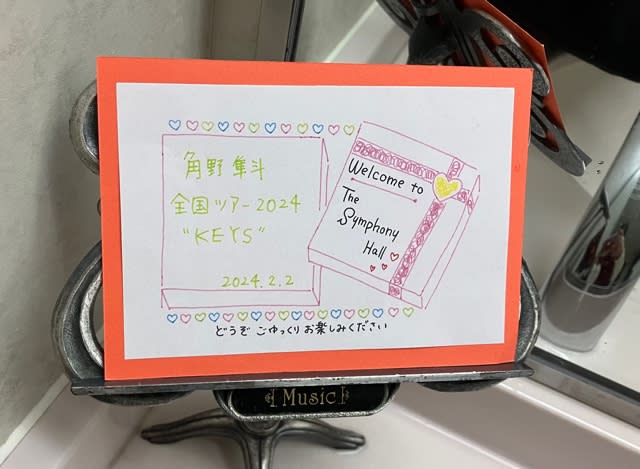 角野隼斗
全国ツアー2024
"KEYS"
2024.2.2
Welcome to
The
Symphony
Hall
どうぞ ごゆっくり お楽しみください
Music